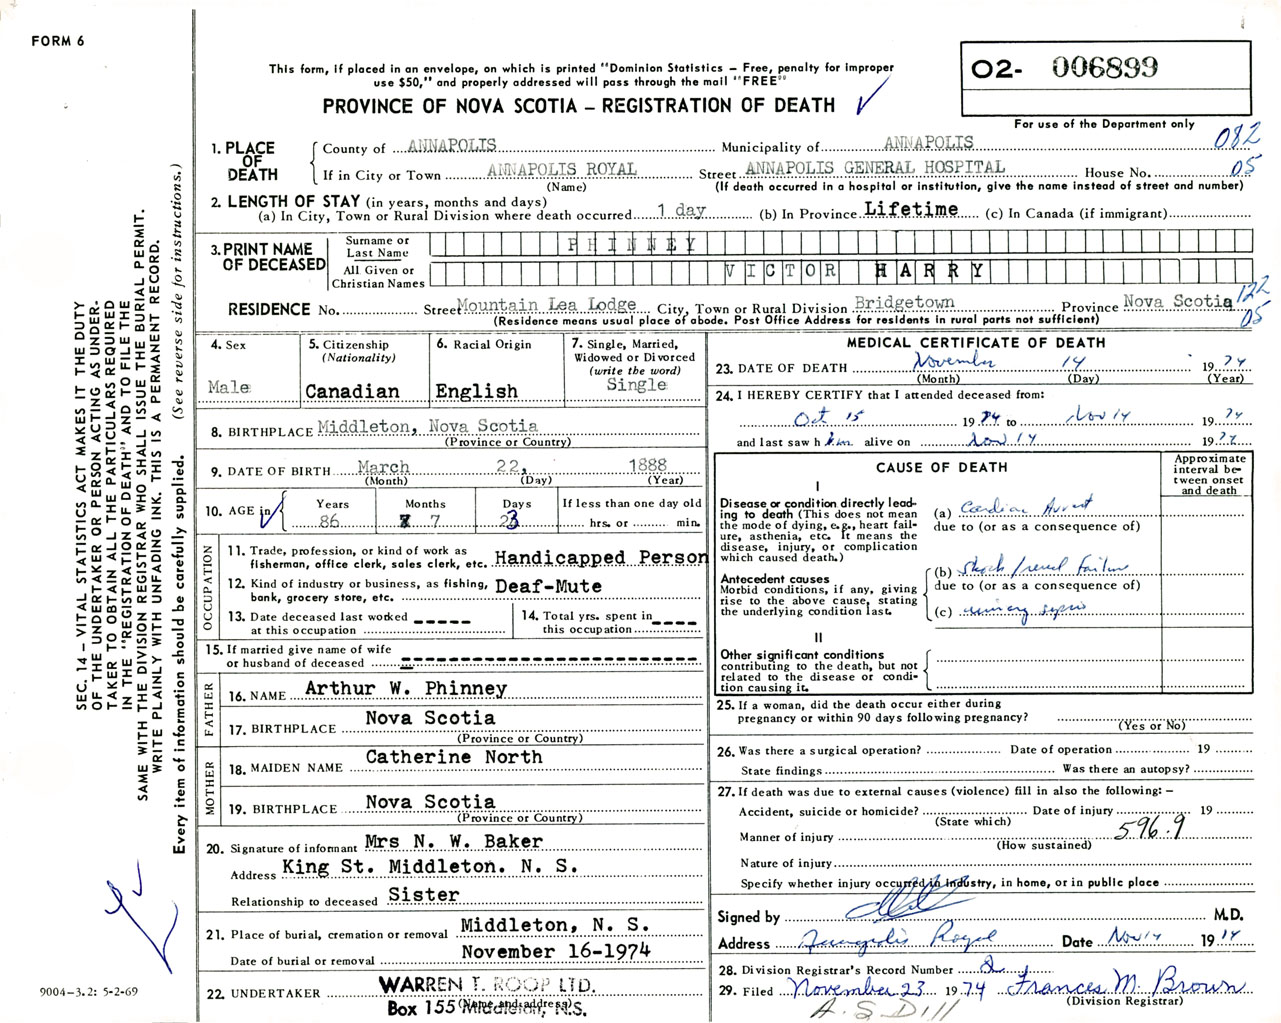 FORM 6
This form, if placed in an envelope, on which is printed "Dominion Statistics – Free, penalty for improper
use $50," and properly addressed will pass through the mail "FREE"
PROVINCE OF NOVA SCOTIA – REGISTRATION OF DEATH
02- 006899
For use of the Department only
082
05
1. PLACE OF DEATH
County of ANNAPOLIS Municipality of ANNAPOLIS
If in City or Town ANNAPOLIS ROYAL Street ANNAPOLIS GENERAL HOSPITAL House No.
(Name) (If death occurred in a hospital or institution, give the name instead of street and number)
2. LENGTH OF STAY (in years, months and days)
(a) In City, Town or Rural Division where death occurred 1 day (b) In Province Lifetime (c) In Canada (if immigrant)
3. PRINT NAME OF DECEASED
Surname or Last Name PHINNEY
All Given or Christian Names VICTOR HARRY
122
05
RESIDENCE No. Street Mountain Lea Lodge City, Town or Rural Division Bridgetown Province Nova Scotia
(Residence means usual place of abode. Post Office Address for residents in rural parts not sufficient)
4. Sex
Male
5. Citizenship
(Nationality)
Canadian
6. Racial Origin
English
7. Single, Married,
Widowed or Divorced
(write the word)
Single
8. BIRTHPLACE Middleton, Nova Scotia
(Province or Country)
9. DATE OF BIRTH March 22, 1888
(Month) (Day) (Year)
10. AGE in
Years Months Days If less than one day old
86 7 23 hrs. or min.
OCCUPATION
11. Trade, profession, or kind of work as
fisherman, office clerk, sales clerk, etc. Handicapped Person
12. Kind of industry or business, as fishing,
bank, grocery store, etc. Deaf-Mute
13. Date deceased last worked
at this occupation
14. Total yrs. spent in
this occupation
15. If married give name of wife
or husband of deceased
FATHER
16. NAME Arthur W. Phinney
17. BIRTHPLACE Nova Scotia
(Province or Country)
MOTHER
18. MAIDEN NAME Catherine North
19. BIRTHPLACE Nova Scotia
(Province or Country)
20. Signature of informant Mrs N. W. Baker
Address King St. Middleton. N. S.
Relationship to deceased Sister
21. Place of burial, cremation or removal Middleton, N. S.
Date of burial or removal November 16-1974
22. UNDERTAKER WARREN T. ROOP LTD.
(Name and address)
Box 155 Middleton, N.S.
MEDICAL CERTIFICATE OF DEATH
23. DATE OF DEATH November 14 1974
(Month) (Day) (Year)
24. I HEREBY CERTIFY that I attended deceased from:
Oct 15 1974 to Nov 14 1974
and last saw him alive on Nov 14 1974
CAUSE OF DEATH
Approximate
interval be-
tween onset
and death
I
Disease or condition directly lead-
ing to death (This does not mean
the mode of dying, e.g., heart fail-
ure, asthenia, etc. It means the
disease, injury, or complication
which caused death.)
(a) Cardiac Arrest
due to (or as a consequence of)
Antecedent causes
Morbid conditions, if any, giving
rise to the above cause, stating
the underlying condition last.
(b) shock / renal failure
due to (or as a consequence of)
(c) urinary sepsis
II
Other significant conditions
contributing to the death, but not
related to the disease or condi-
tion causing it.
25. If a woman, did the death occur either during
pregnancy or within 90 days following pregnancy?
(Yes or No)
26. Was there a surgical operation? Date of operation 19
State findings Was there an autopsy?
27. If death was due to external causes (violence) fill in also the following: –
Accident, suicide or homicide? Date of injury 19
(State which)
596.9
Manner of injury
(How sustained)
Nature of injury
Specify whether injury occurred in Industry, in home, or in public place
Signed by M.D.
Address Annapolis Royal Date Nov 14 1974
28. Division Registrar's Record Number
29. Filed November 23 1974 Frances M. Brown
(Division Registrar)
A. S. Dill
SEC. 14 – VITAL STATISTICS ACT MAKES IT THE DUTY
OF THE UNDERTAKER OR PERSON ACTING AS UNDER-
TAKER TO OBTAIN ALL THE PARTICULARS REQUIRED
IN THE "REGISTRATION OF DEATH" AND TO FILE THE
SAME WITH THE DIVISION REGISTRAR WHO SHALL ISSUE THE BURIAL PERMIT.
WRITE PLAINLY WITH UNFADING INK. THIS IS A PERMANENT RECORD.
Every item of information should be carefully supplied. (See reverse side for instructions.)
9004-3.2: 5-2-69